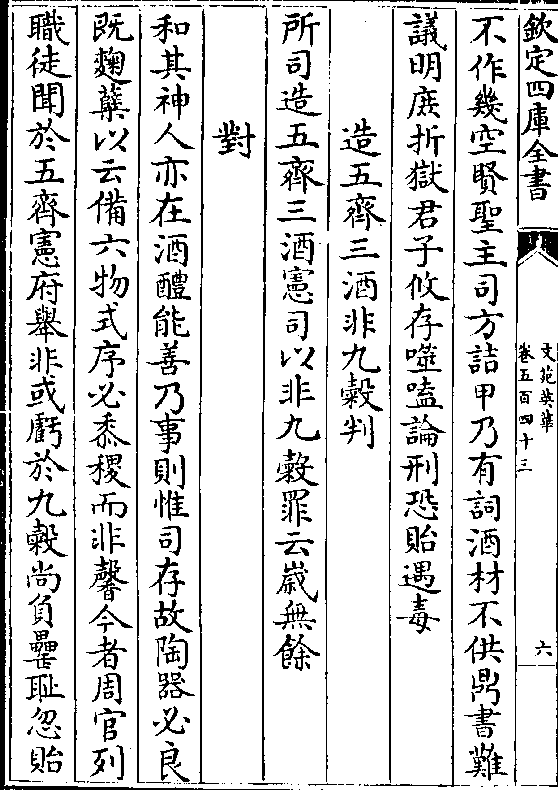 欽定四庫全書
文苑英華
卷五百四十三
六
不作幾空賢聖主司方詰甲乃有詞酒材不供鼎書難
議明庶折獄君子攸存噬嗑論刑恐貽遇毒
造五齊三酒非九穀判
所司造五齊三酒憲司以非九穀罪云嵗無餘
對
和其神人亦在酒醴能善乃事則惟司存故陶器必良
既麴蘖以云備六物式序必黍稷而非馨今者周官列
職徒聞於五齊憲府舉非或虧於九穀尚負罍耻忽貽